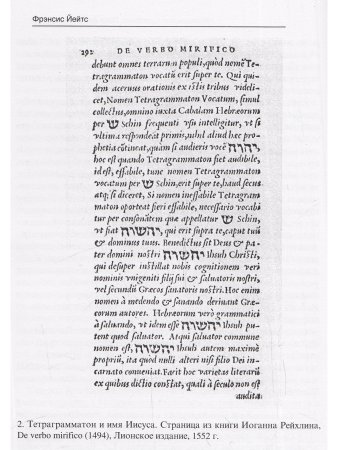 Фрэнсис Йейтс
292 DE VERBO MIRIFICO
debunt omnes terrarum populi, quod nomē Te⸗
tragrammaton vocatū erit super te. Qui qui⸗
dem aceruus orationis ex istis tribus videli⸗
cet, Nomen Tetragrammaton Vocatum, simul
collectus, omnino iuxta Cabalam Hebræorum
per ש Schin frequenti vsu intelligitur, vt si
vltima respondeāt primis, nihil aliud hæc pro⸗
phetia cōtineat, quàm si audieris vocē יהוה
hoc est quando Tetragrammaton fiet audibile,
id est, effabile, tunc nomen Tetragrammaton
vocatum per ש Schin, erit super te, haud secus
atq; si diceret, Si nomen ineffabile Tetragram
maton oporteat fieri effabile, necessario vocabi
tur per consonātem quæ appellatur ש Schin,
vt fiat יהשוה, qui erit supra te, caput tuū
& dominus tuus. Benedictus sit Deus & pa⸗
ter domini nostri יהשוה Ihsuh Christi,
qui desuper infinxit nobis cognitionem vérì
nominis filii sui & Saluatoris nostri,
vel secundū Græcos sanatoris nostri. Hoc enim
nomen à medendo & sanando deriuant Græ⸗
corum autores. Hebræorum verò grammatici
à saluando, vt idem esse יהשוה Ihsuh pu⸗
tent quod saluator. Atqui saluator commune
nomen est. יהשוה Ihsuh autem maximè
propriū, ita quod nulli alteri nisi filio Dei in⸗
carnato conueniat. Hoc fuit ex varietas literarū
ex quibus dictio constat, quali à seculo non est
audita.
2. Тетраграмматон и имя Иисуса. Страница из книги Иоганна Рейхлина,
De verbo mirifico (1494), Лионское издание, 1552 г.